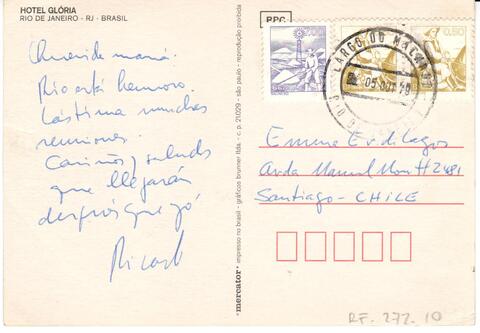 HOTEL GLÓRIA
RIO DE JANEIRO - RJ - BRASIL
Querida mamá.
Rio está hermoso.
Lástima muchas
reuniones.
Cariños y saludos
que llegarán
después que yó
Ricardo
mercator · impresso no brasil - gráficos brunner ltda. - c. p. 21029 - são paulo - reprodução proibida
PPC
LARGO DO MACHADO
05 OUT 79
RIO
0,50
Emma E. de Lagos
Avda Manuel Montt 2481
Santiago - CHILE
RF. 272.10